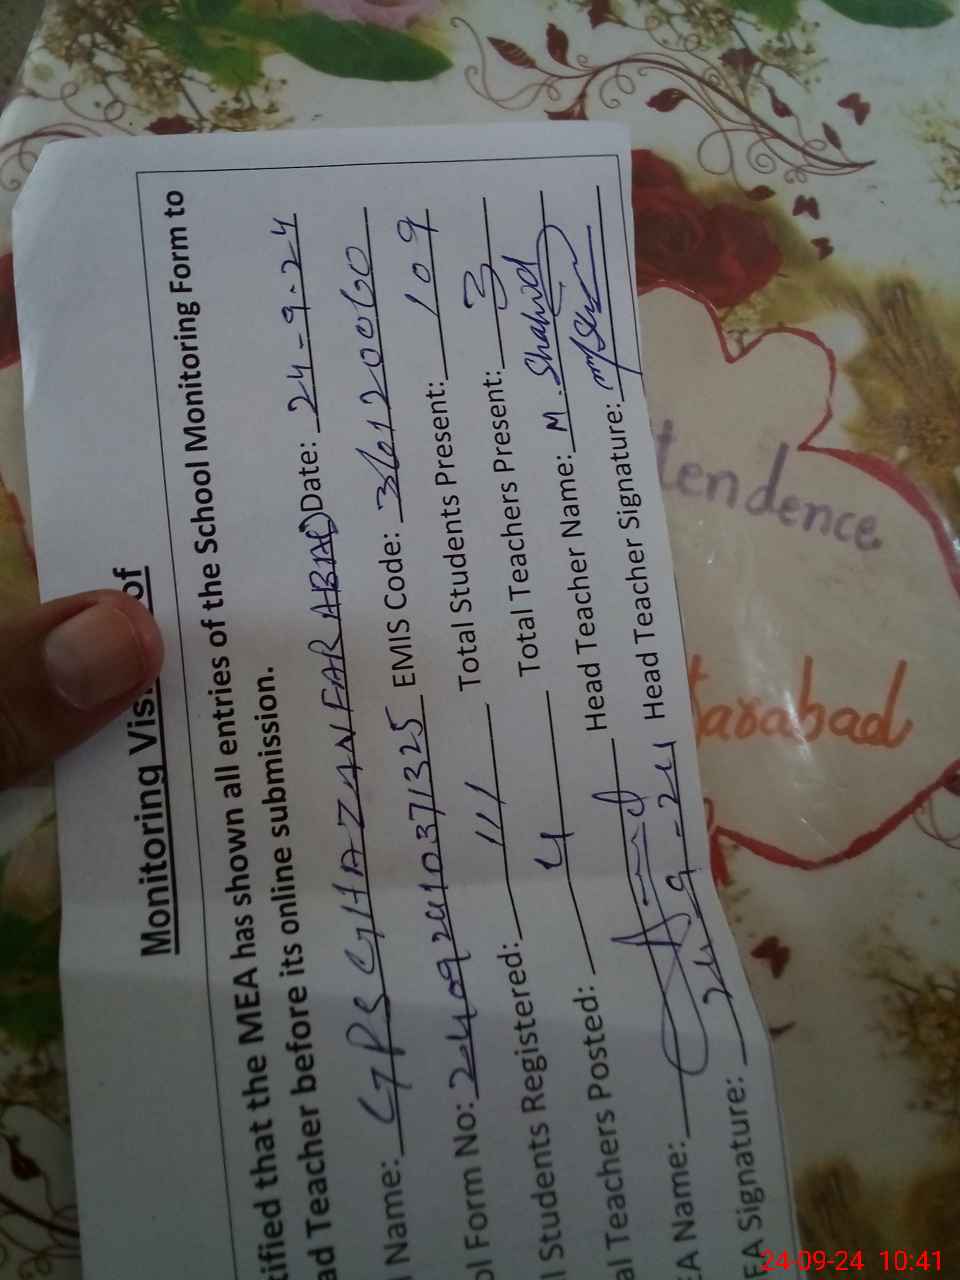 Monitoring Vis of
tified that the MEA has shown all entries of the School Monitoring Form to
ad Teacher before its online submission.
l Name: GPS GHAZANFAR ABAD Date: 24-9-24
ol Form No: 24092410371325 EMIS Code: 36120060
l Students Registered: 111 Total Students Present: 109
al Teachers Posted: 4 Total Teachers Present: 3
EA Name: Head Teacher Name: M. Shahid
EA Signature: 24-9-24 Head Teacher Signature:
tendence
farabad
24-09-24 10:41